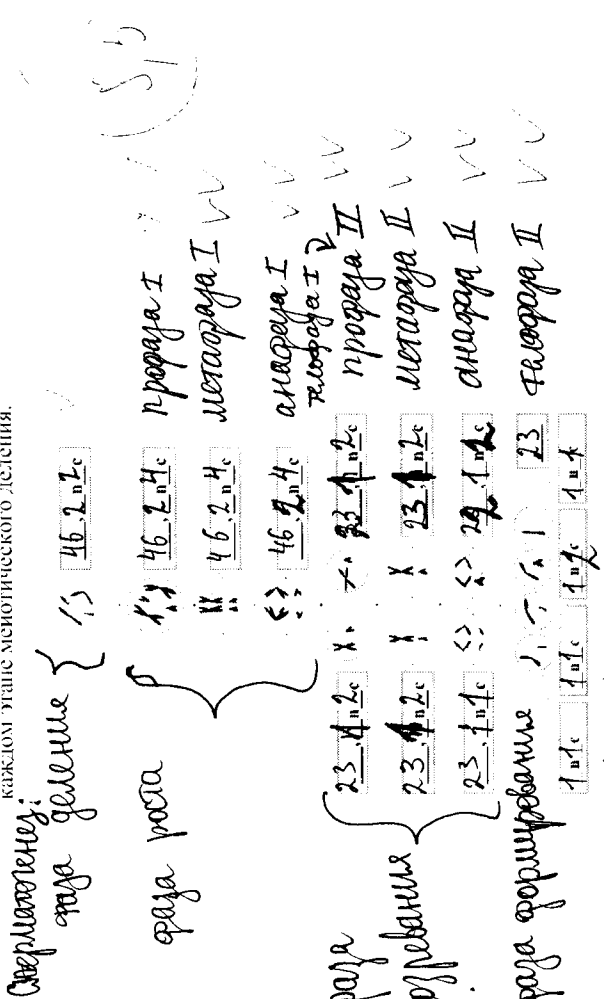 каждом этапе мейотического деления.
Сперматогенез:
фаза деление { 46, 2n2c
фаза роста
46, 2n4c профаза I
46, 2n4c метафаза I
46, 2n4c анафаза I
телофаза I
фаза
озревания
23, 1n2c 23 1n2c профаза II
23, 1n2c 23, 1n2c метафаза II
23, 1n1c 1n2c анафаза II
фаза формирование 23 телофаза II
1n1c 1n1c 1n2c 1n